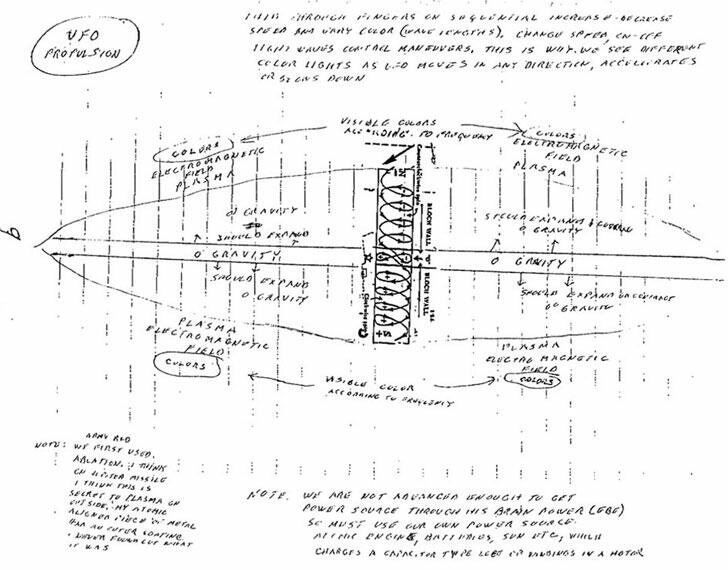 UFO
PROPULSION
THRU THROUGH FINGERS ON SEQUENTIAL INCREASE-DECREASE
SPEED AND VARY COLOR (WAVE LENGTHS), CHANGE SPEED, ON-OFF
LIGHT WAVES CONTROL MANEUVERS, THIS IS WHY WE SEE DIFFERENT
COLOR LIGHTS AS UFO MOVES IN ANY DIRECTION, ACCELERATES
OR SLOWS DOWN
VISIBLE COLORS
TO FREQUENCY
COLORS
ELECTROMAGNETIC
FIELD
PLASMA
COLORS
ELECTROMAGNETIC
FIELD
PLASMA
GRAVITY
SHOULD EXPAND
O GRAVITY
SHOULD EXPAND
O GRAVITY
BLOCH WALL
"O"
BLOCH WALL
SHOULD EXPAND
O GRAVITY
O GRAVITY
SHOULD EXPAND
GRAVITY
9
PLASMA
ELECTROMAGNETIC
FIELD
COLORS
PLASMA
ELECTRO MAGNETIC
FIELD
COLORS
VISIBLE COLOR
ACCORDING TO FREQUENCY
ARMY R&D
NOTE: WE FIRST USED
ABLATION, I THINK
ON MISSILE
I THINK THIS IS
SECRET TO PLASMA ON
OUTSIDE, MY ATOMIC
ALIGNED PIECE OF METAL
HAD AN OUTER COATING
I NEVER FOUND OUT WHAT
IT WAS
NOTE. WE ARE NOT ADVANCED ENOUGH TO GET
POWER SOURCE THROUGH HIS BRAIN POWER (EBE)
SO MUST USE OUR OWN POWER SOURCE.
ATOMIC ENGINE, BATTERIES, SUN ETC, WHICH
CHARGES A CAPACITOR TYPE OF WINDINGS IN A MOTOR